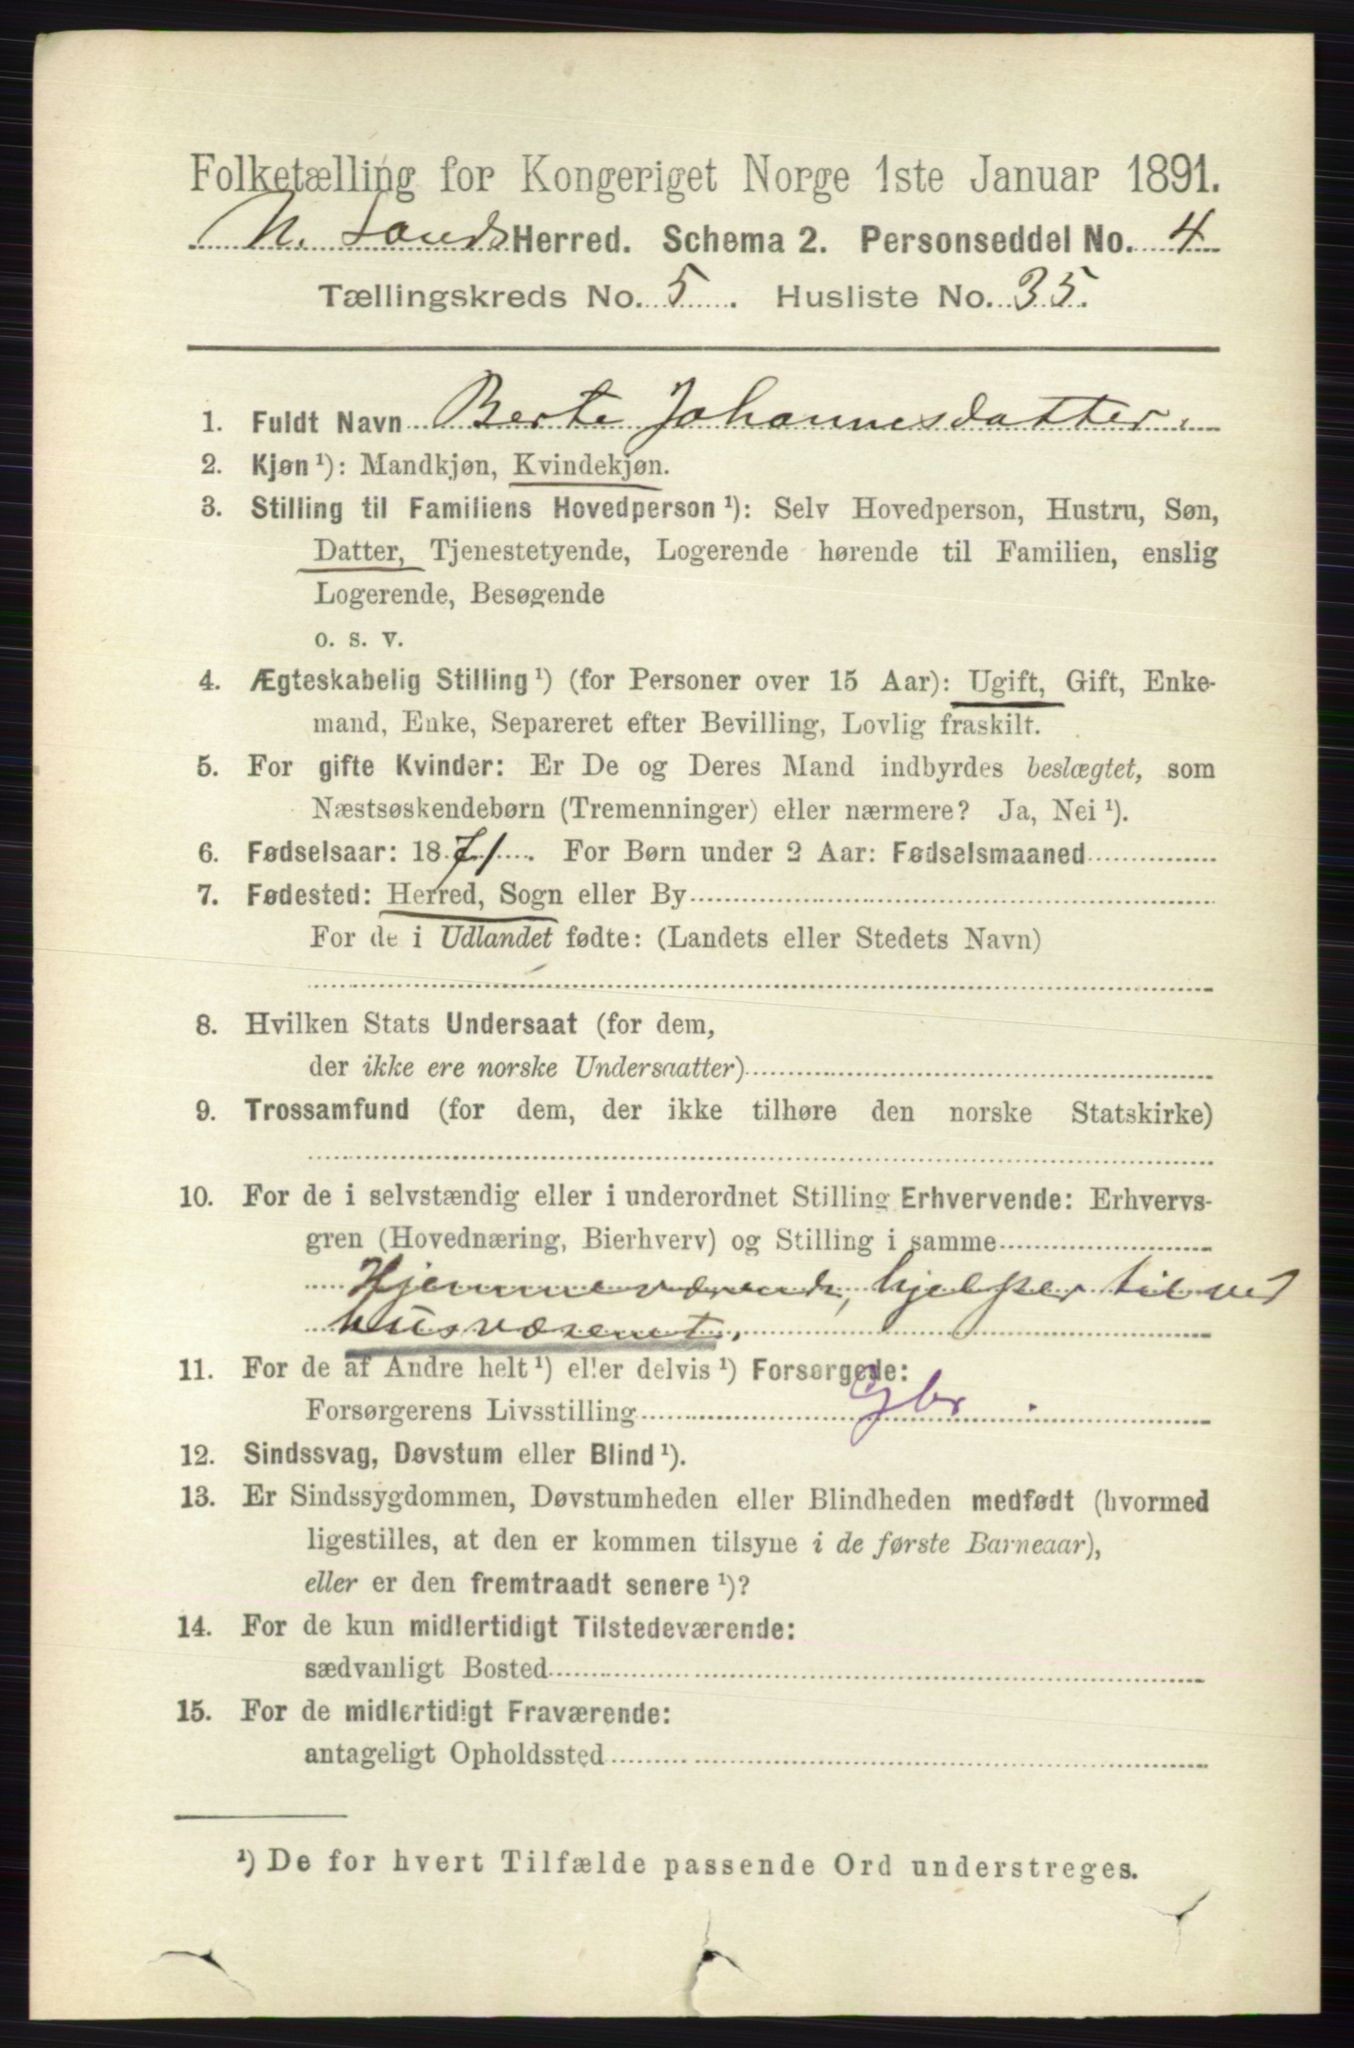 Folketælling for Kongeriget Norge 1ste Januar 1891.
N. Lands Herred. Schema 2. Personseddel No. 4
Tællingskreds No. 5. Husliste No. 35.
1. Fuldt Navn Berte Johannesdatter.
2. Kjøn ¹): Mandkjøn, Kvindekjøn.
3. Stilling til Familiens Hovedperson ¹): Selv Hovedperson, Hustru, Søn,
Datter, Tjenestetyende, Logerende hørende til Familien, enslig
Logerende, Besøgende
o. s. v.
4. Ægteskabelig Stilling ¹) (for Personer over 15 Aar): Ugift, Gift, Enke-
mand, Enke, Separeret efter Bevilling, Lovlig fraskilt.
5. For gifte Kvinder: Er De og Deres Mand indbyrdes beslægtet, som
Næstsøskendebørn (Tremenninger) eller nærmere? Ja, Nei ¹).
6. Fødselsaar: 1871. For Børn under 2 Aar: Fødselsmaaned
7. Fødested: Herred, Sogn eller By
For de i Udlandet fødte: (Landets eller Stedets Navn)
8. Hvilken Stats Undersaat (for dem,
der ikke ere norske Undersaatter)
9. Trossamfund (for dem, der ikke tilhøre den norske Statskirke)
10. For de i selvstændig eller i underordnet Stilling Erhvervende: Erhvervs-
gren (Hovednæring, Bierhverv) og Stilling i samme
Hjemmeværende, hjelper til ved
husvæsenet.
11. For de af Andre helt ¹) eller delvis ¹) Forsørgede:
Forsørgerens Livsstilling Gbr.
12. Sindssvag, Døvstum eller Blind ¹).
13. Er Sindssygdommen, Døvstumheden eller Blindheden medfødt (hvormed
ligestilles, at den er kommen tilsyne i de første Barneaar),
eller er den fremtraadt senere ¹)?
14. For de kun midlertidigt Tilstedeværende:
sædvanligt Bosted
15. For de midlertidigt Fraværende:
antageligt Opholdssted
¹) De for hvert Tilfælde passende Ord understreges.